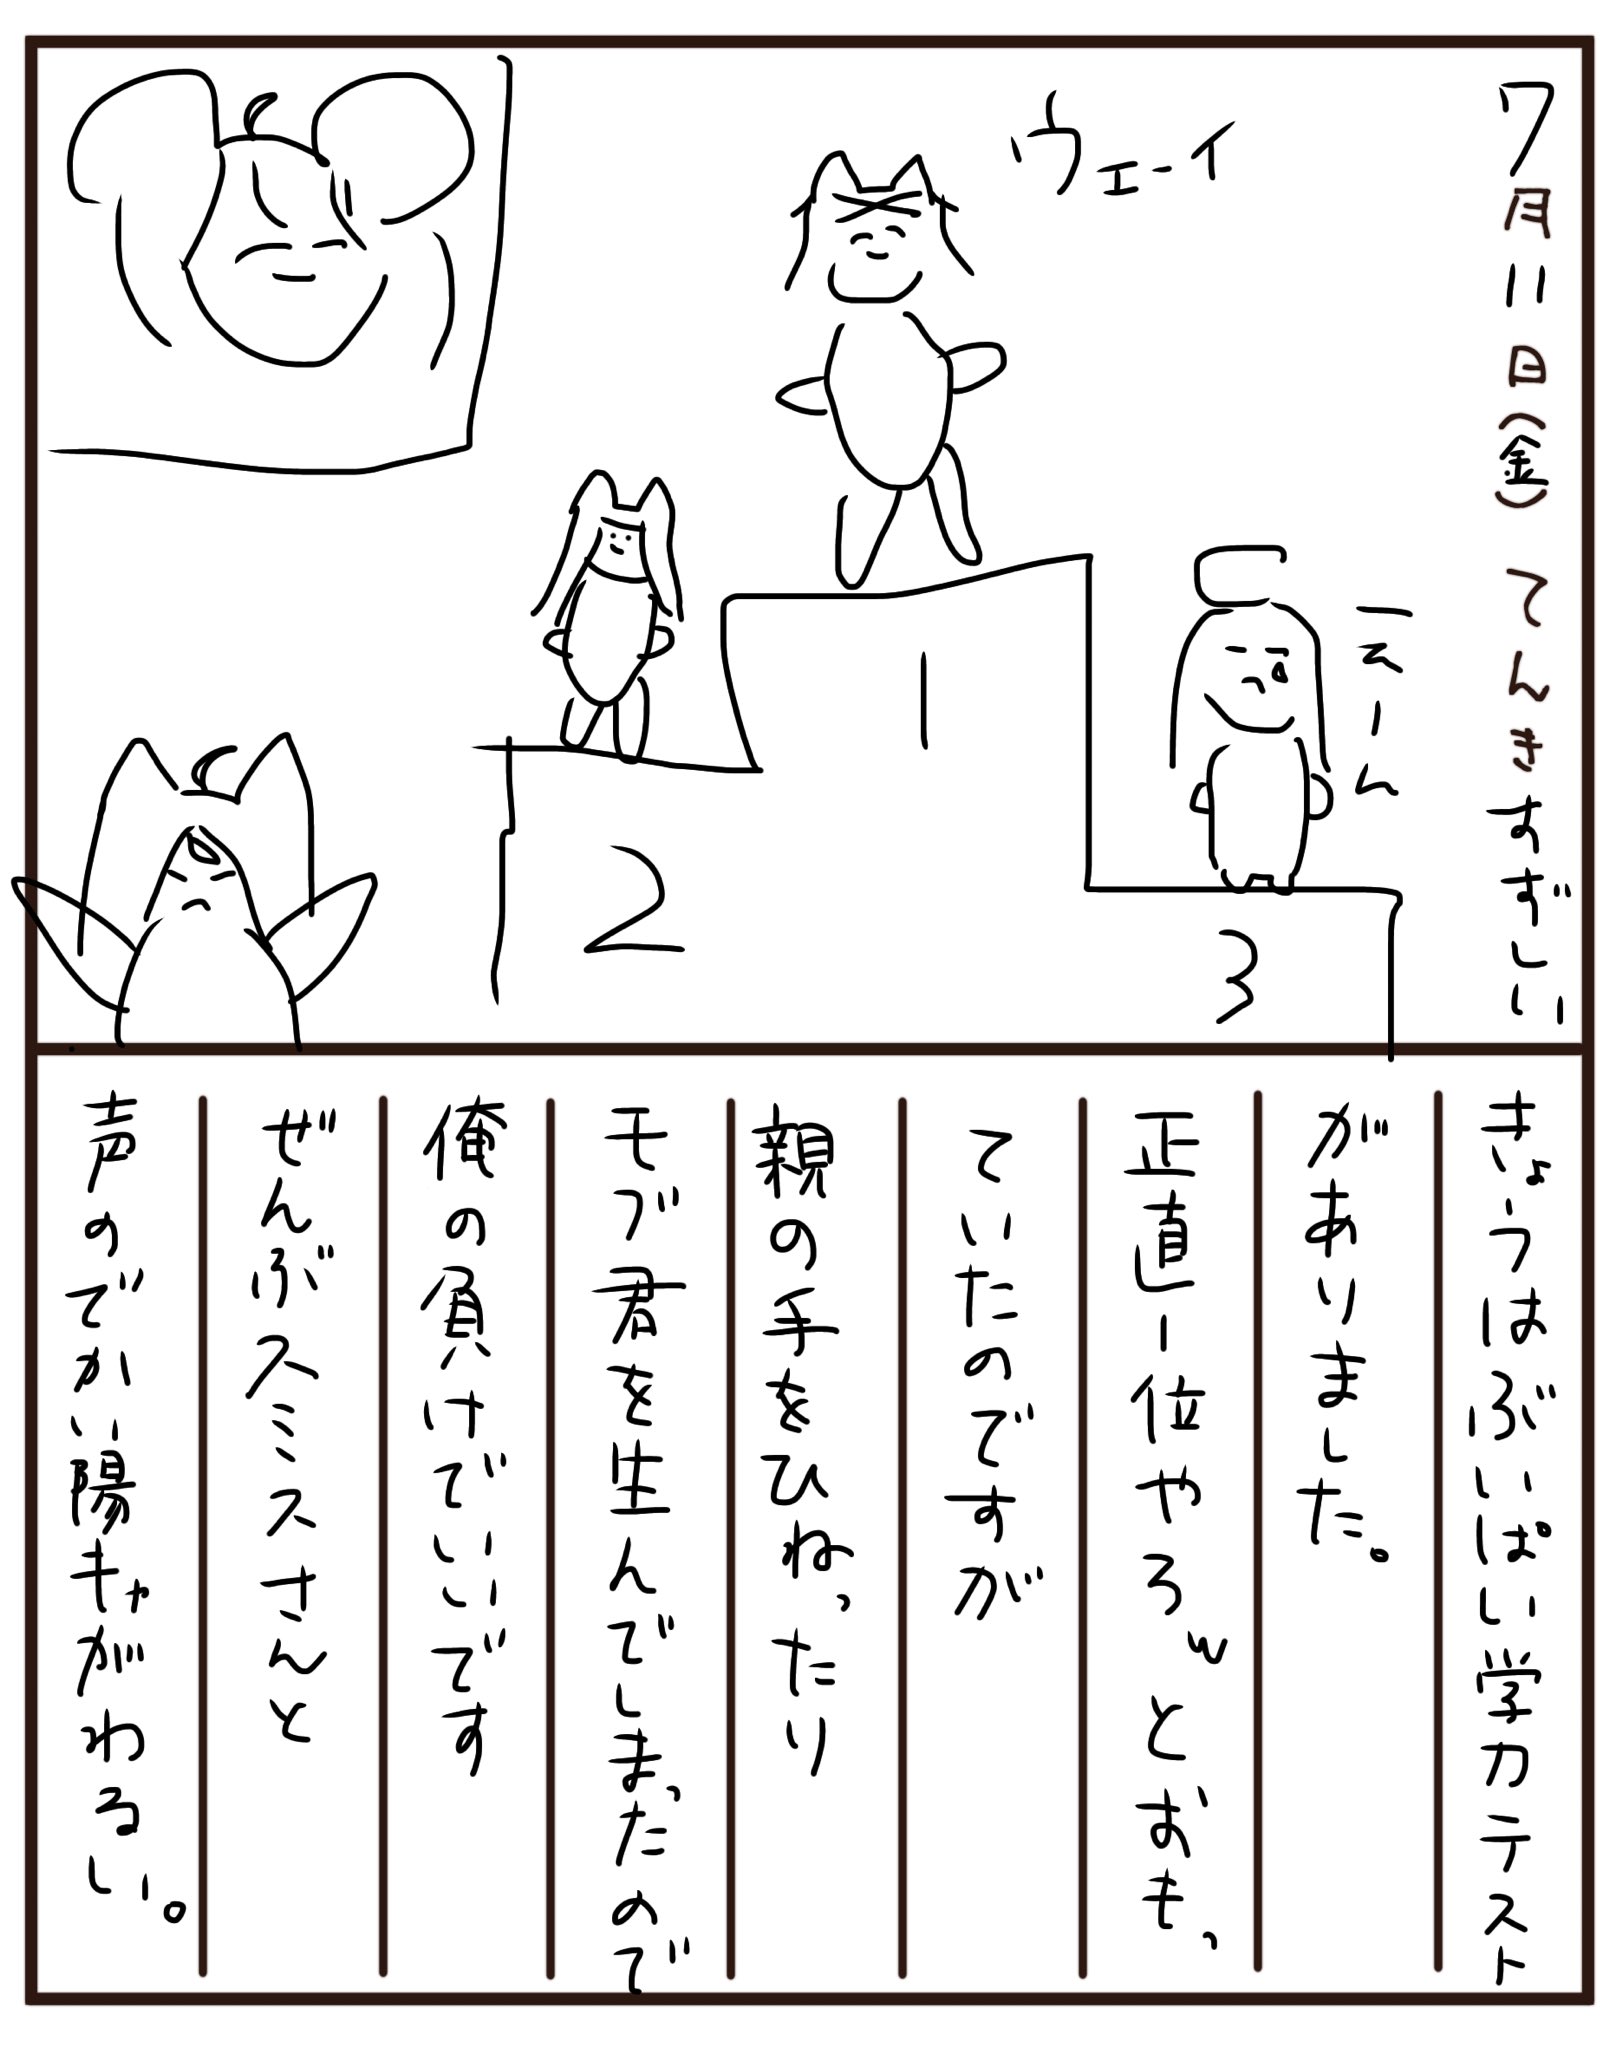 7月11日(金)てんきすずしい
ウェーイ
ええーん
1
2
3
きょうはぶいぱい学力テスト
がありました。
正直一位やろwとおも、
ていたのですが
親の手をひねったり
モブ君を生んでしまったので
俺の負けでいいです
ぜんぶスミスさんと
声のでかい陽キャがわるい。